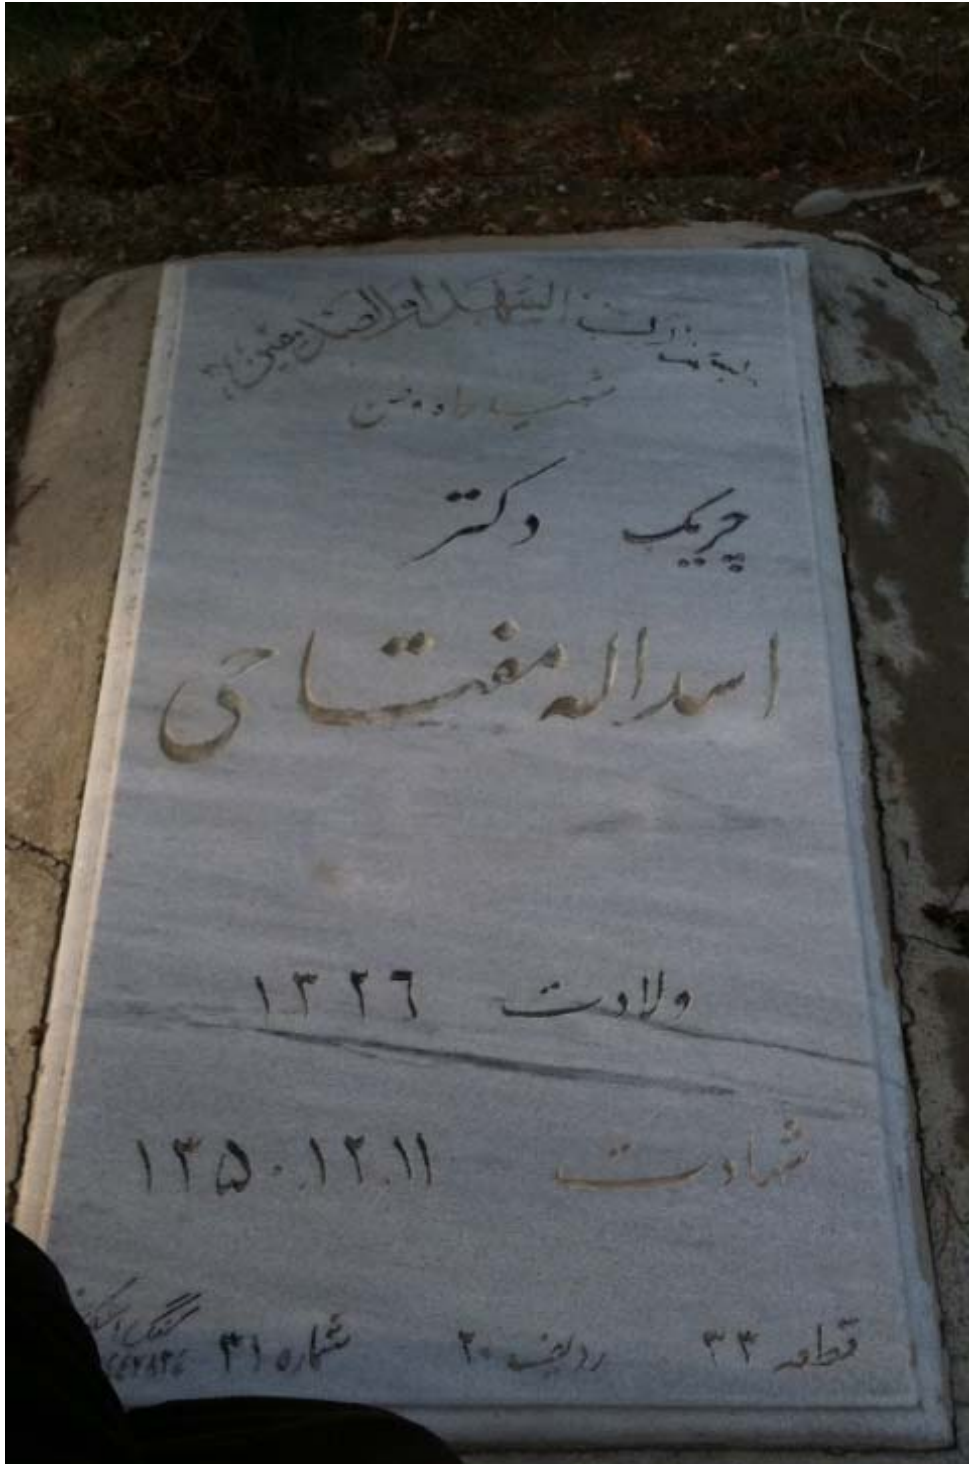 الشهدا والصدیقین
شهید راه میهن
چریک دکتر
اسداله مفتاحی
ولادت ۱۳۲۶
شهادت ۱۳۵۰.۱۲.۱۱
قطعه ۳۳ ردیف ۲۰ شماره ۳۱
سنگ